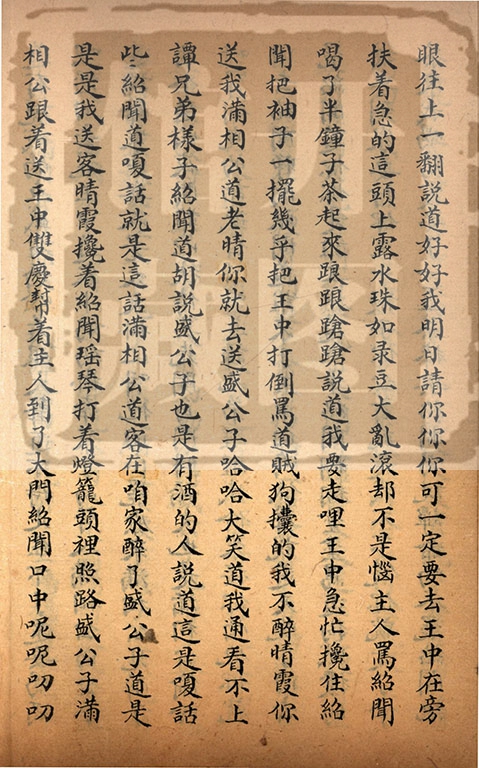 眼往上一翻説道好好我明日請你你你可一定要去王中在旁
扶着急的這頭上露水珠如菉豆大亂滚却不是惱主人罵紹聞
喝了半鐘子茶起來踉踉蹌蹌説道我要走哩王中急忙攙住紹
聞把袖子一擺幾乎把王中打倒罵道賊狗攮的我不醉晴霞你
送我滿相公道老晴你就去送盛公子哈哈大笑道我通看不上
譚兄弟樣子紹聞道胡説盛公子也是有酒的人説道這是嗄話
些紹聞道嗄話就是這話滿相公道客在咱家醉了盛公子道是
是是我送客晴霞攙着紹聞瑶琴打着燈籠頭裡照路盛公子滿
相公跟着送王中雙慶幫着主人到了大門紹聞口中呢呢叨叨